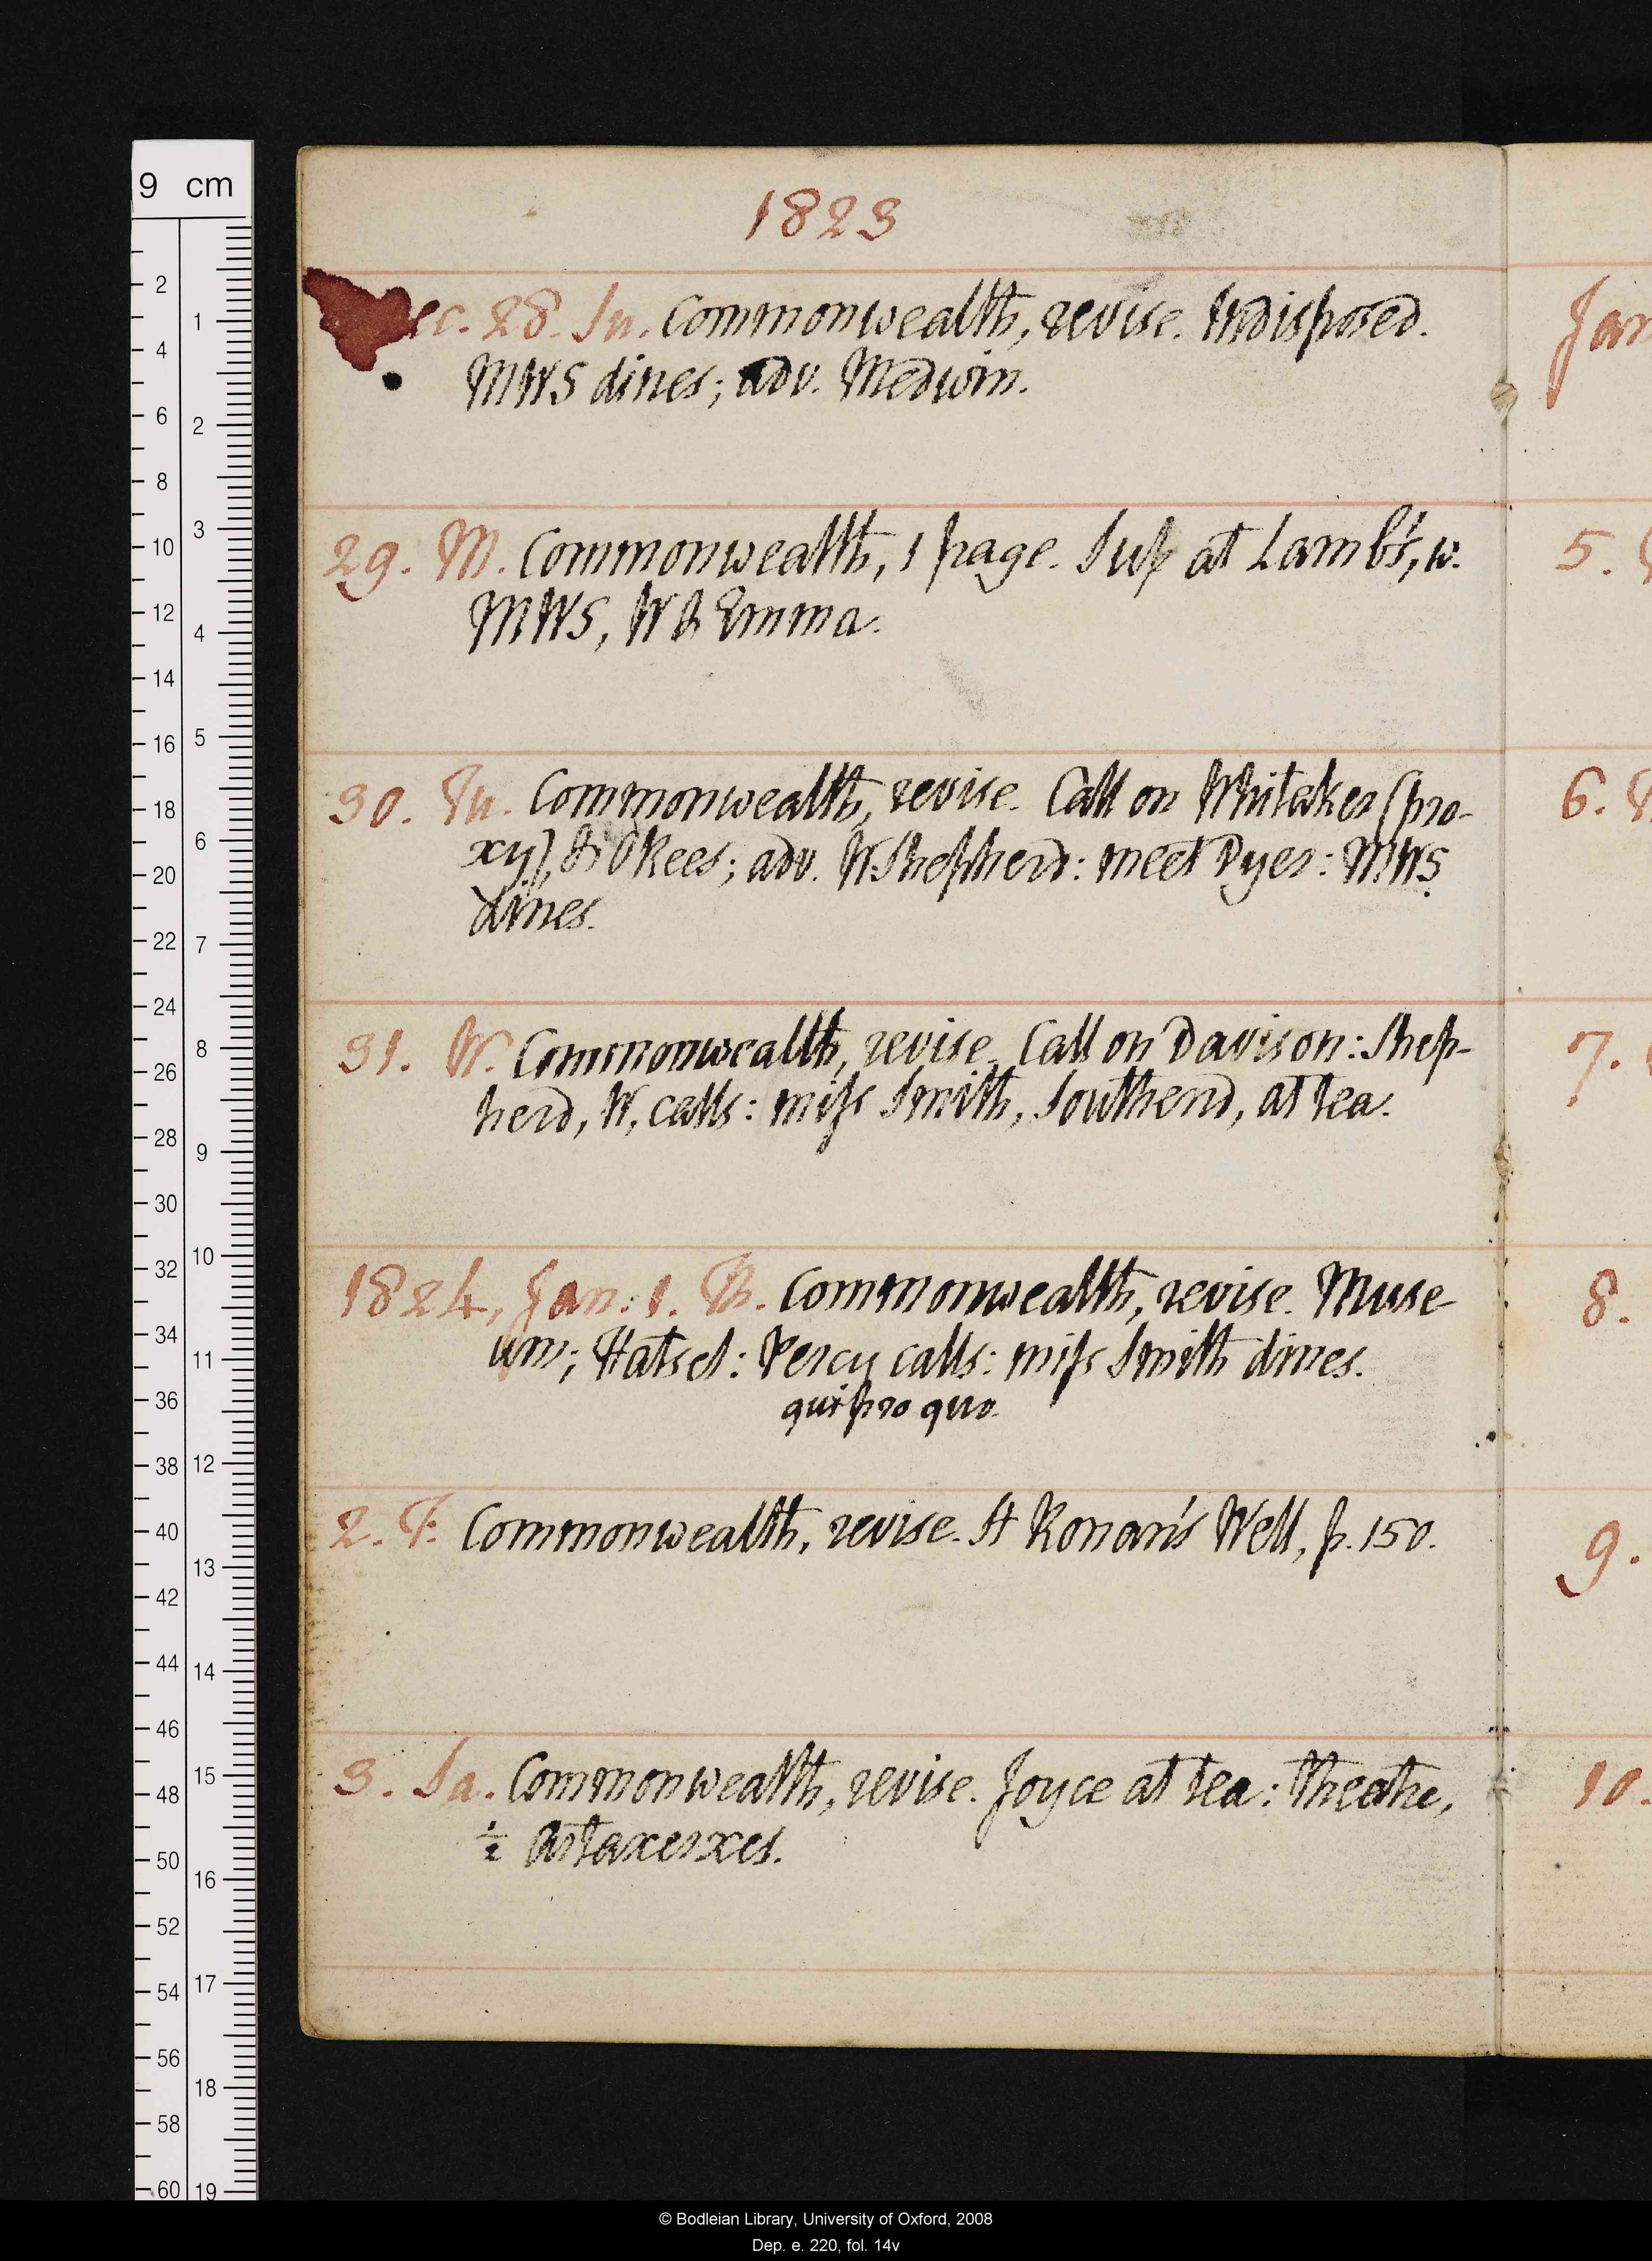 1823
ec. 28. Su. Commonwealth, revise. Indisposed.
MWS dines; adv. Medwin.
29. M. Commonwealth, 1 page. Sup at Lamb's, w.
MWS, W & Emma.
30. Tu. Commonwealth, revise. Call on Whitaker (pro-
xy), & Rees; adv. W. Shepherd: meet Dyer: MWS
dines.
31. W. Commonwealth, revise. Call on Davison: Shep-
herd, W, calls: miss Smith, Southend, at tea.
1824, Jan. 1. Th. Commonwealth, revise. Muse-
um; Hatsel: Percy calls: miss Smith dines.
qui pro quo.
2. F. Commonwealth, revise. St Ronan's Well, p. 150.
3. Sa. Commonwealth, revise. Joyce at tea: Theatre,
½ Artaxerxes.
Jan
5.
6.
7.
8.
9.
10.
9 cm
2 4 6 8 10 12 14 16 18 20 22 24 26 28 30 32 34 36 38 40 42 44 46 48 50 52 54 56 58 60
1 2 3 4 5 6 7 8 9 10 11 12 13 14 15 16 17 18 19
© Bodleian Library, University of Oxford, 2008
Dep. e. 220, fol. 14v